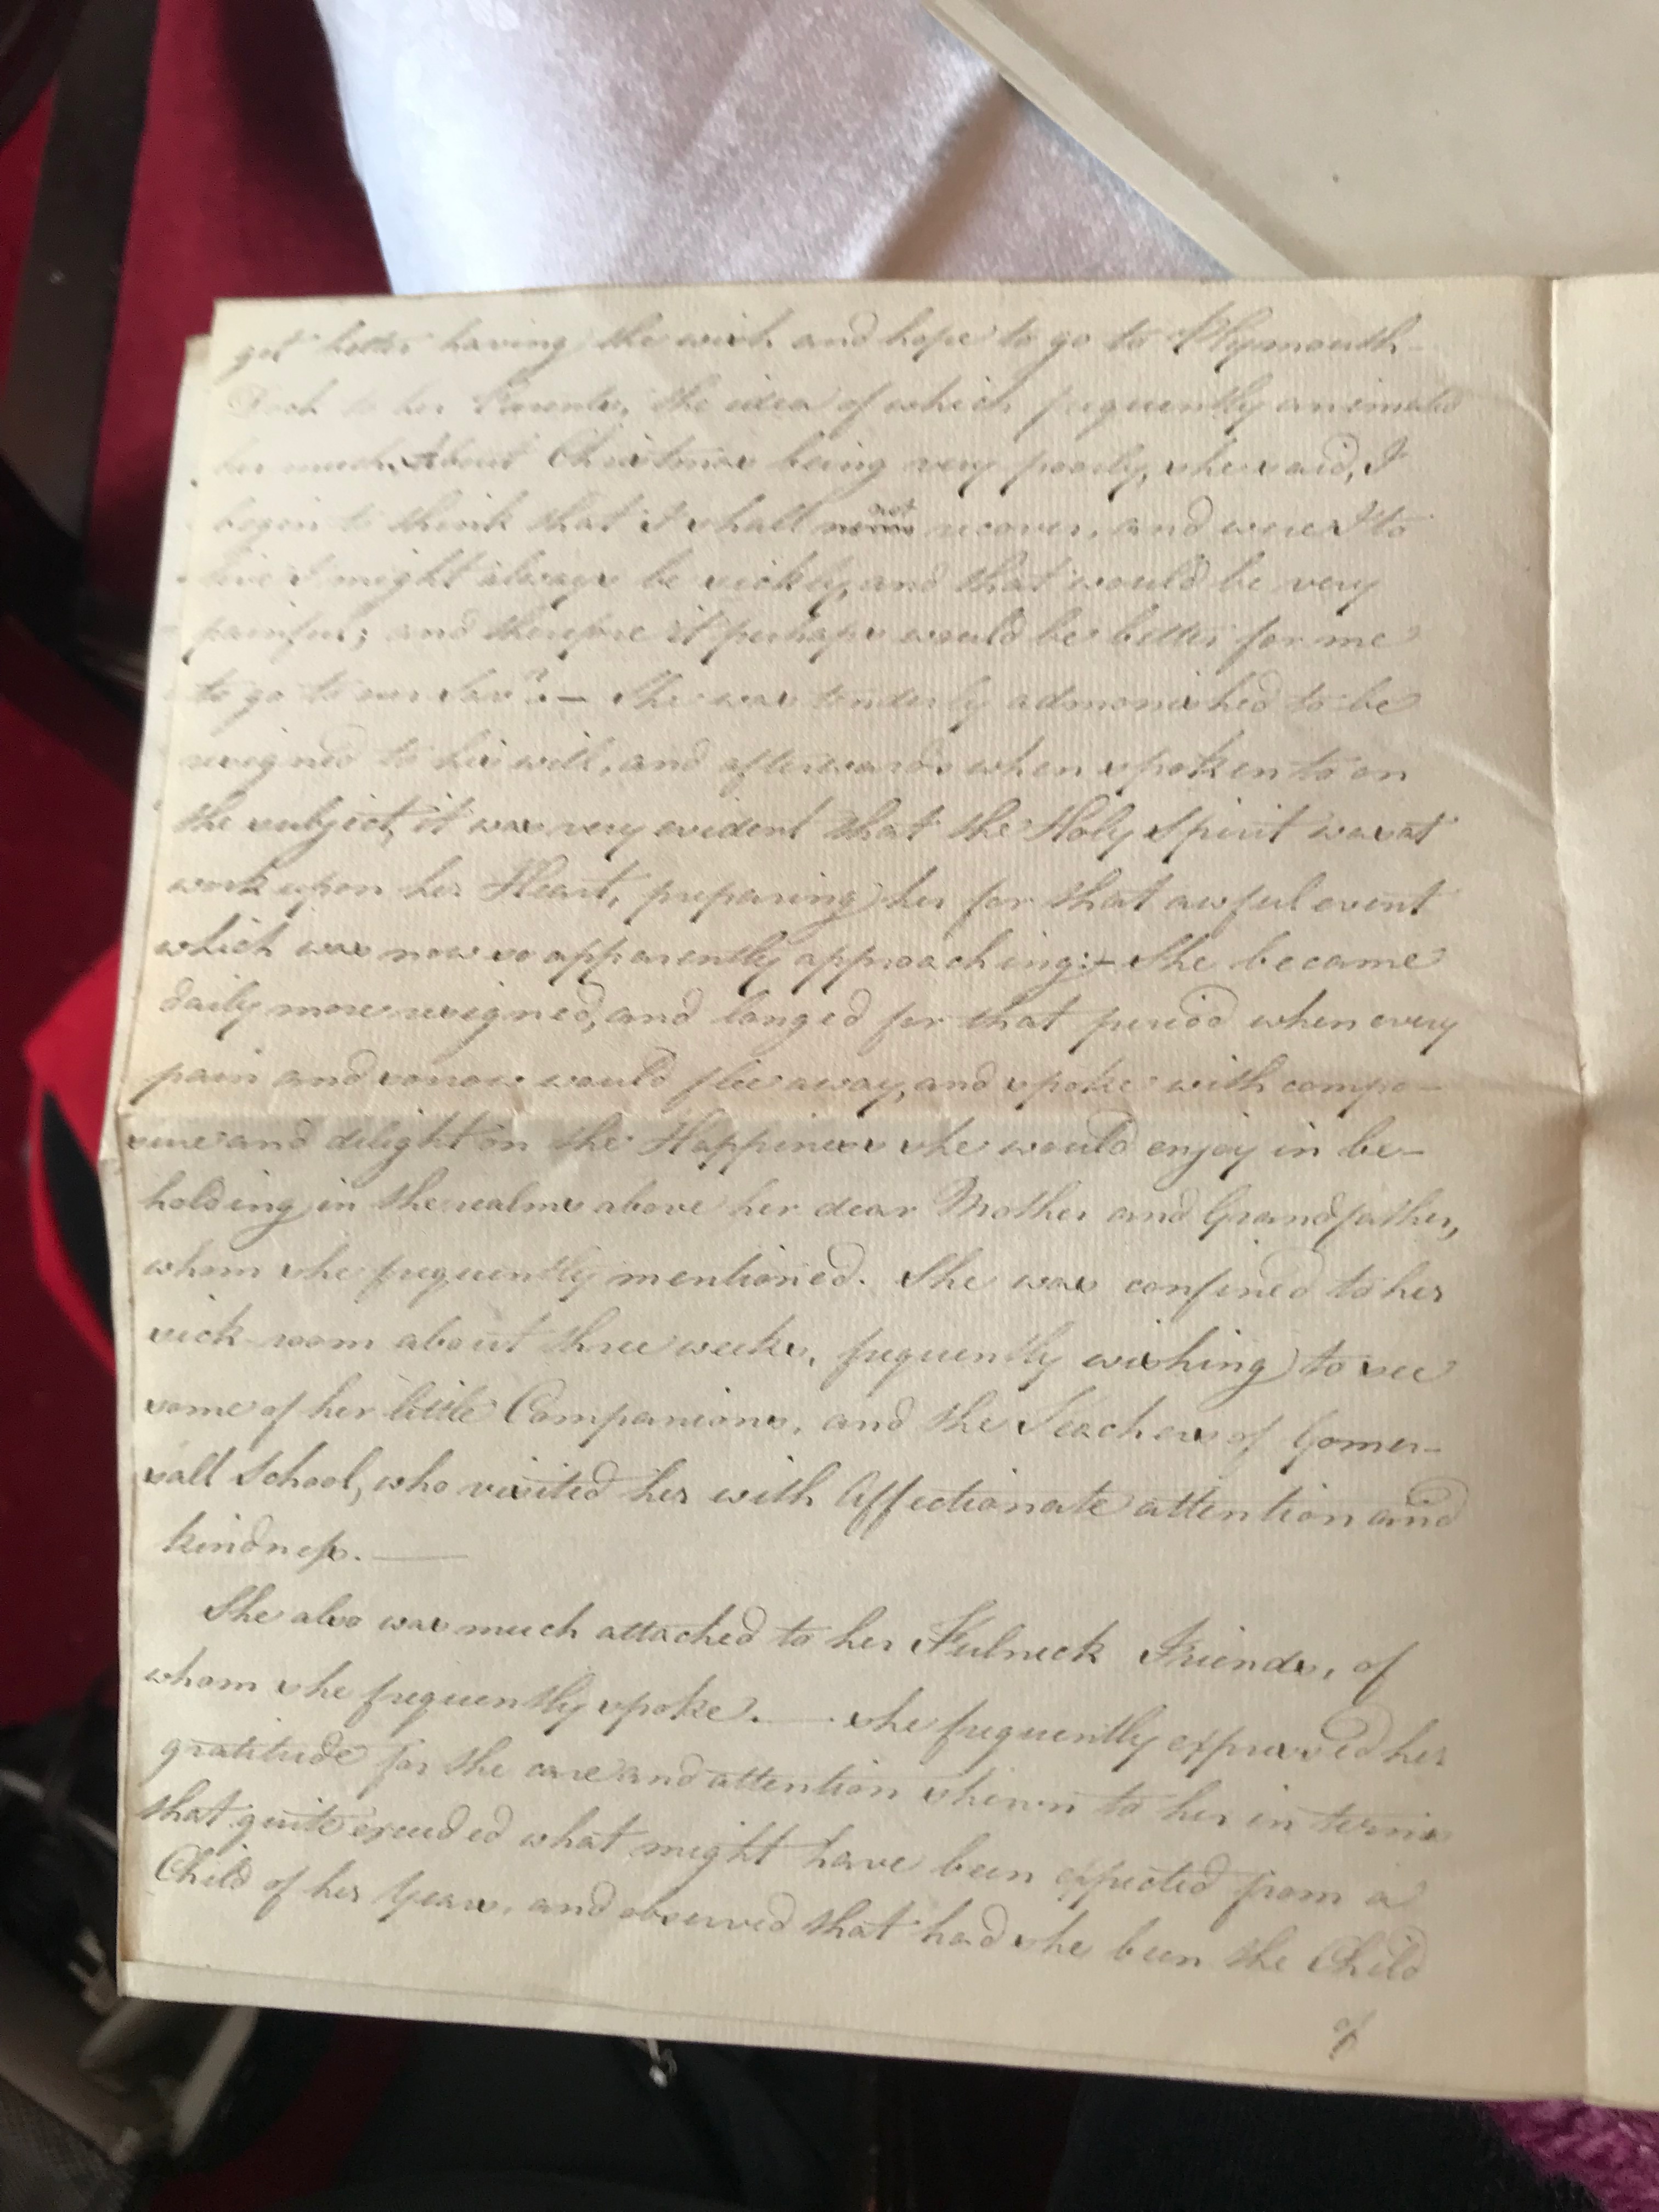 get better having the wish and hope to go to Plymouth-
Dock to her Parents, the idea of which frequently animated
her much. About Christmas being very poorly, she said, I
begin to think that I shall not recover, and were I to
live I might always be sickly, and that would be very
painful; and therefore it perhaps would be better for me
to go to our Savr. — She was tenderly admonished to be
resigned to his will, and afterwards when spoken to on
the subject, it was very evident that the Holy Spirit was at
work upon her Heart, preparing her for that awful event
which was now so apparently approaching:— She became
daily more resigned, and longed for that period when every
pain and sorrow would flee away, and spoke with compo-
sure and delight on the Happiness she would enjoy in be-
holding in the realms above her dear Mother and Grandfather,
whom she frequently mentioned. She was confined to her
sick-room about three weeks, frequently wishing to see
some of her little Companions, and the Teachers of Gomer-
sall School, who visited her with Affectionate attention and
kindness. —
She also was much attached to her Fulneck Friends, of
whom she frequently spoke. — she frequently expressed her
gratitude for the care and attention shewn to her in terms
that quite exceeded what might have been expected from a
Child of her Years, and observed that had she been the Child
of